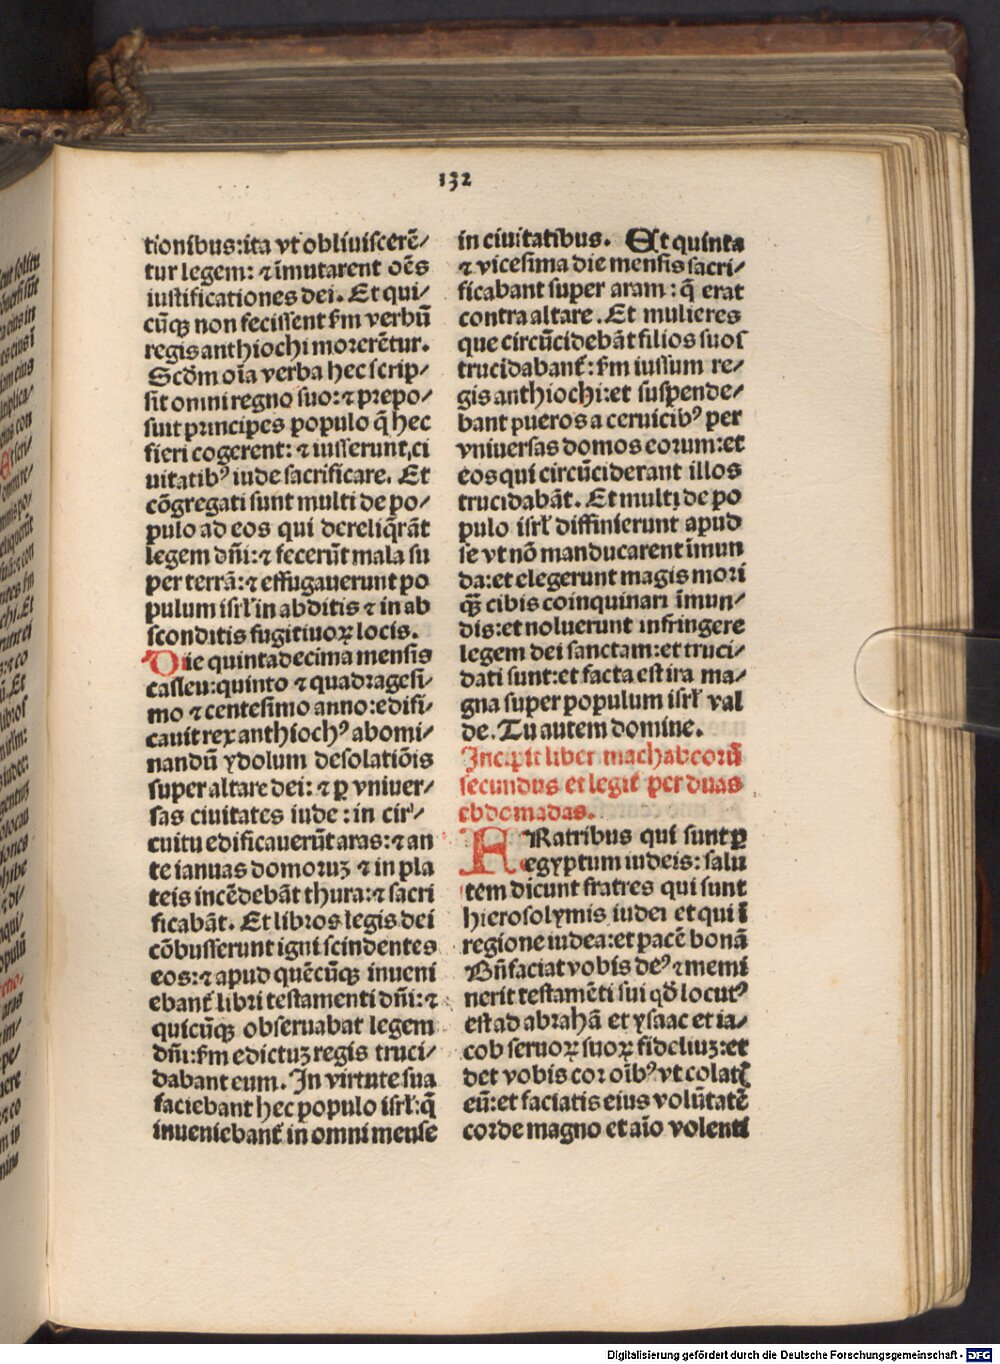 132
tionibus:ita vt obliuiscerē/
tur legem: ⁊ īmutarent oēs
iustificationes dei. Et qui/
cūqꝫ non fecissent ſm verbū
regis anthiochi morerētur.
Scdm oīa verba hec scrip/
sit omni regno suo:⁊ prepo/
suit principes populo q̄ hec
fieri cogerent: ⁊ iusserunt ci
uitatibꝰ iude sacrificare. Et
cōgregati sunt multi de po/
pulo ad eos qui dereliq̄rāt
legem dn̄i:⁊ fecerūt mala su
per terrā:⁊ effugauerunt po
pulum isrl̄ in abditis ⁊ in ab
sconditis fugitiuoꝝ locis.
Die quintadecima mensis
casleu:quinto ⁊ quadragesi/
mo ⁊ centesimo anno:edifi/
cauit rex anthiochꝰ abomi/
nandū ydolum desolatiōis
super altare dei: ⁊ ꝑ vniuer/
sas ciuitates iude : in cir/
cuitu edificauerūt aras:⁊ an
te ianuas domoruꝫ ⁊ in pla
teis incēdebāt thura:⁊ sacri
ficabāt. Et libros legis dei
cōbusserunt igni scindentes
eos:⁊ apud quēcūqꝫ inueni
ebant̄ libri testamenti dn̄i:⁊
quicūqꝫ obseruabat legem
dn̄i:ſm edictuꝫ regis truci/
dabant eum. In virtute sua
faciebant hec populo isrl̄:q̄
inueniebant̄ in omni mense
in ciuitatibus. Et quinta
⁊ vicesima die mensis sacri/
ficabant super aram : q̄ erat
contra altare. Et mulieres
que circūcidebāt filios suos
trucidabant̄: ſm iussum re/
gis anthiochi:et suspende/
bant pueros a ceruicibꝰ per
vniuersas domos eorum:et
eos qui circūciderant illos
trucidabāt. Et multi de po
pulo isrl̄ diffinierunt apud
se vt nō manducarent īmun
da:et elegerunt magis mori
qꝫ̄ cibis coinquinari īmun/
dis:et noluerunt infringere
legem dei sanctam:et truci/
dati sunt:et facta est ira ma/
gna super populum isrl̄ val
de. Tu autem domine.
Incipit liber machabeorū
secundus et legit̄ per duas
ebdomadas.
FRatribus qui sunt ꝑ
egyptum iudeis: salu
tem dicunt fratres qui sunt
hierosolymis iudei et qui ī
regione iudea:et pacē bonā
Bn̄faciat vobis deꝰ ⁊ memi
nerit testamēti sui qd̄ locutꝰ
est ad abrahā et ysaac et ia/
cob seruoꝝ suoꝝ fideliuꝫ:et
det vobis cor oībꝰ vt colatꝭ
eū:et faciatis eius volūtatē
corde magno et aīo volenti
Digitalisierung gefördert durch die Deutsche Forschungsgemeinschaft - DFG